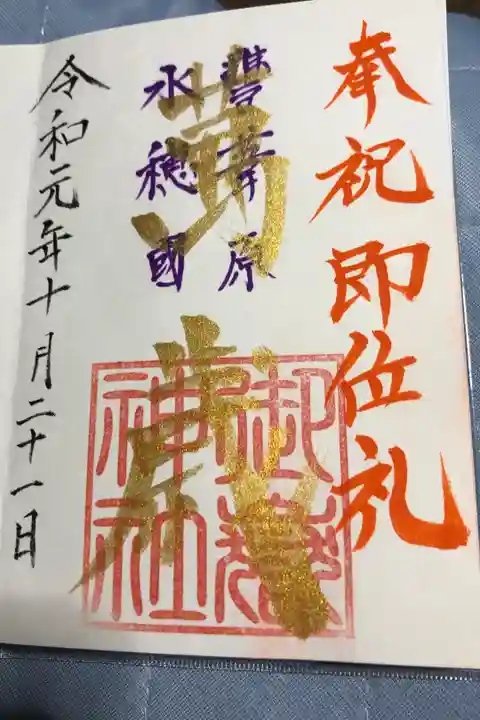 奉祝即位礼
豊葦原
水穂國
萬歳
神社
令和元年十月二十一日